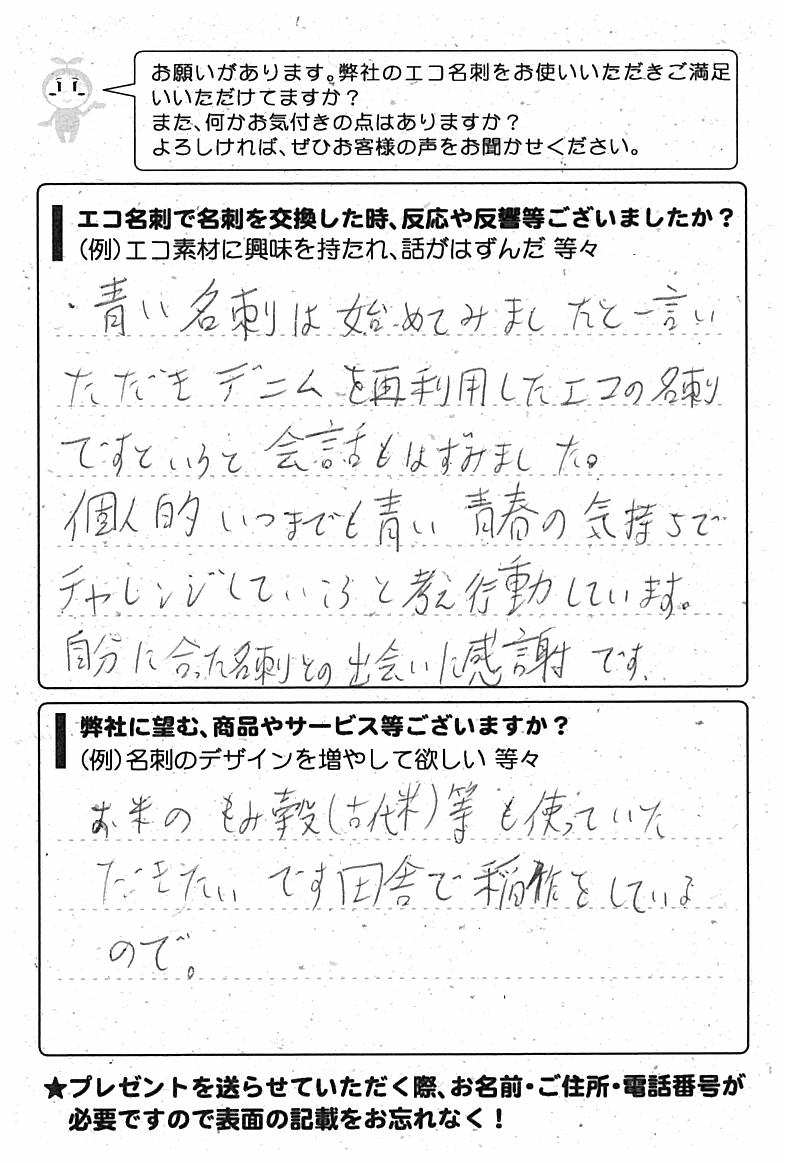 お願いがあります。弊社のエコ名刺をお使いいただきご満足
いいただけてますか？
また、何かお気付きの点はありますか？
よろしければ、ぜひお客様の声をお聞かせください。
エコ名刺で名刺を交換した時、反応や反響等ございましたか？
（例）エコ素材に興味を持たれ、話がはずんだ 等々
・青い名刺は始めてみましたと一言い
ただきデニムを再利用したエコの名刺
ですというと会話もはずみました。
個人的いつまでも青い青春の気持ちで
チャレンジしていこうと考え行動しています。
自分に合った名刺との出会いに感謝です。
弊社に望む、商品やサービス等ございますか？
（例）名刺のデザインを増やして欲しい 等々
お米のもみ殻(古代米)等も使っていた
だきたいです田舎で稲作をしている
ので。
★プレゼントを送らせていただく際、お名前・ご住所・電話番号が
必要ですので表面の記載をお忘れなく！